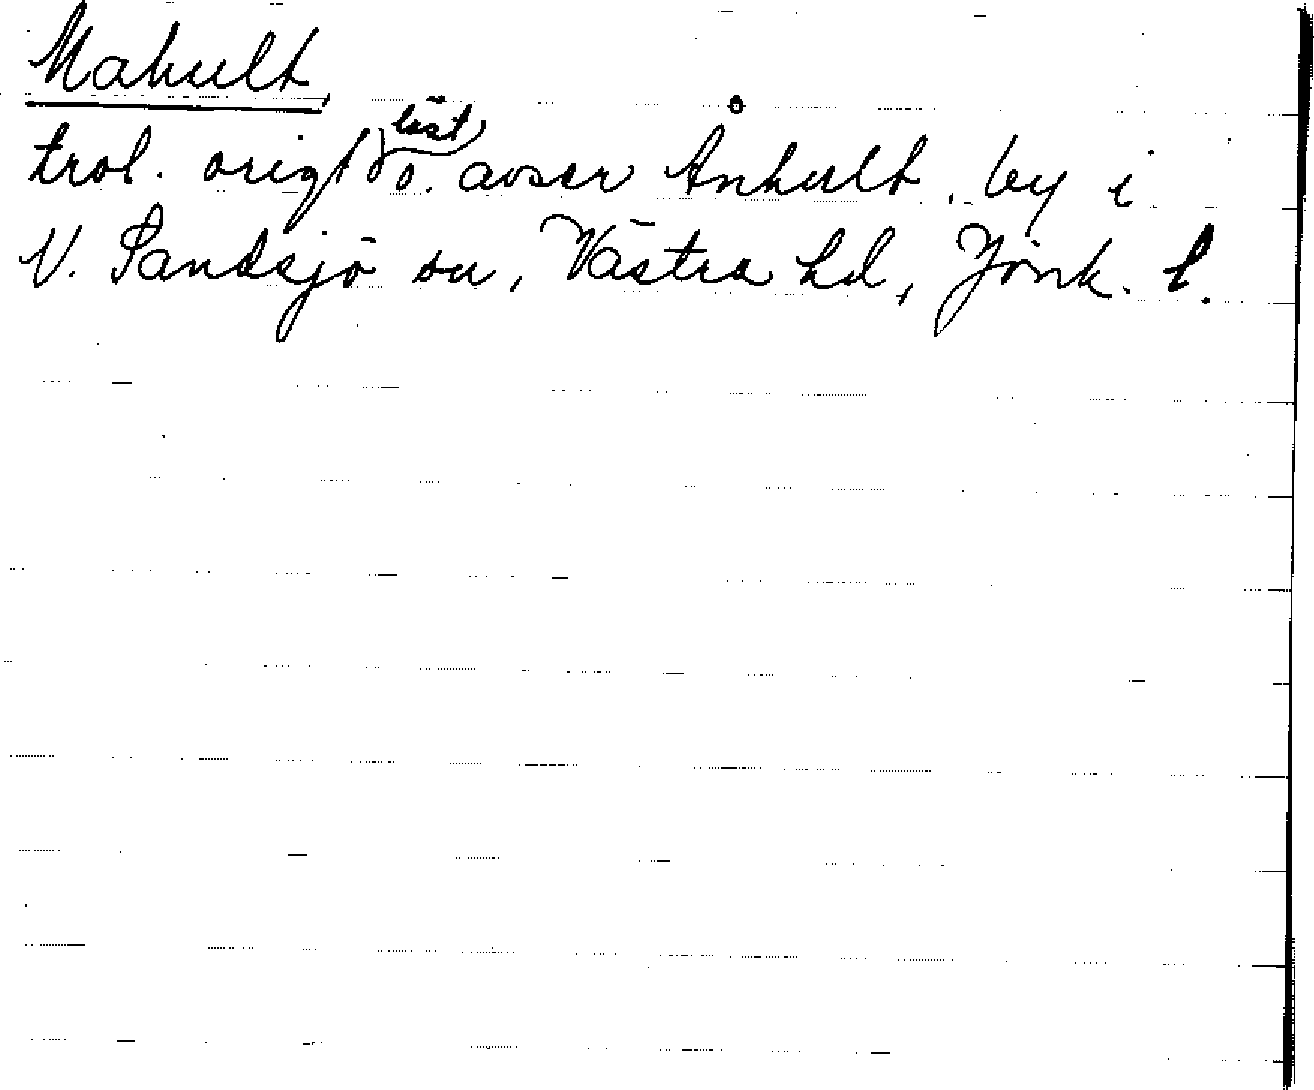 Mahult,
trol. origt läst o. avser Ånhult, by i
V. Sandsjö sn, Västra hd, Jönk. l.